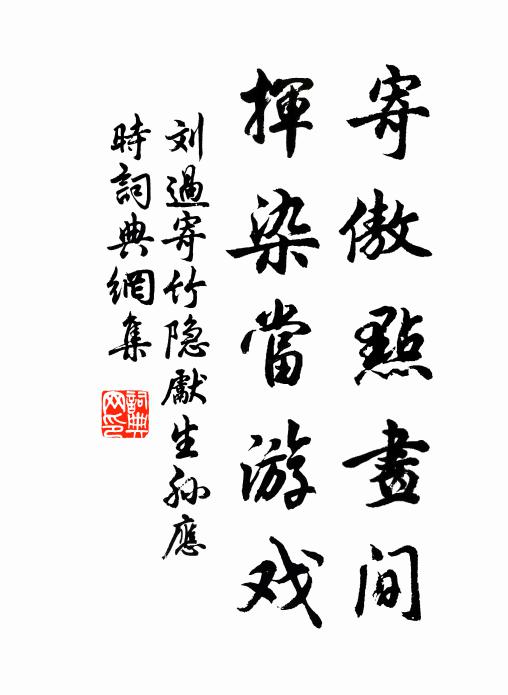 寄傲點畫間
揮染當游戏
刘過寄竹隐獻生孙應
時詞典網集
詞典网印